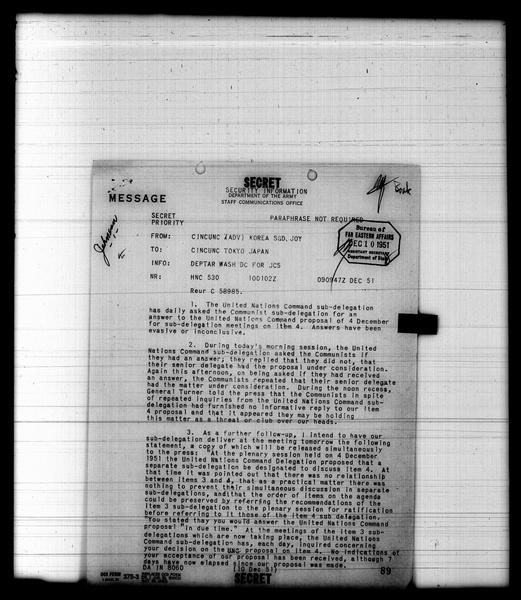 SECRET
SECURITY INFORMATION
DEPARTMENT OF THE ARMY
STAFF COMMUNICATIONS OFFICE
Book
MESSAGE
SECRET
PRIORITY
PARAPHRASE NOT REQUIRED
Johnson
Bureau of
FAR EASTERN AFFAIRS
DEC 10 1951
ASSISTANT SECRETARY
Department of State
FROM: CINCUNC (ADV) KOREA SGD, JOY
TO: CINCUNC TOKYO JAPAN
INFO: DEPTAR WASH DC FOR JCS
NR: HNC 530 100102Z 090947Z DEC 51
Reur C 58985.
1. The United Nations Command sub-delegation
has daily asked the Communist sub-delegation for an
answer to the United Nations Command proposal of 4 December
for sub-delegation meetings on Item 4. Answers have been
evasive or inconclusive.
2. During today's morning session, the United
Nations Command sub-delegation asked the Communists if
they had an answer; they replied that they did not, that
their senior delegate had the proposal under consideration.
Again this afternoon, on being asked if they had received
an answer, the Communists repeated that their senior delegate
had the matter under consideration. During the noon recess,
General Turner told the press that the Communists in spite
of repeated inquiries from the United Nations Command sub-
delegation had furnished no informative reply to our Item
4 proposal and that it appeared they may be holding
this matter as a threat or club over our heads.
3. As a further follow-up, I intend to have our
sub-delegation deliver at the meeting tomorrow the following
statement, a copy of which will be released simultaneously
to the press: "At the plenary session held on 4 December
1951 the United Nations Command Delegation proposed that
separate sub-delegation be designated to discuss Item 4. At
that time it was pointed out that there was no relationship
between items 3 and 4, that as a practical matter there was
nothing to prevent their simultaneous discussion in separate
sub-delegations, andithat the order of items on the agenda
could be preserved by referring the recommendations of the
item 3 sub-delegation to the plenary session for ratification
before referring to it those of the item 4 sub delegation.
"You stated that you would answer the United Nations Command
proposal "in due time." At the meetings of the item 3 sub-
delegations which are now taking place, the United Nations
Command sub-delegation has, each day, inquired concerning
your decision on the UNC proposal on Item 4. No indications of
your acceptance of our proposal has been received, although 7
days have now elapsed since our proposal was made.
DA IN 8060 (10 Dec 51) 89
375-3
SECRET